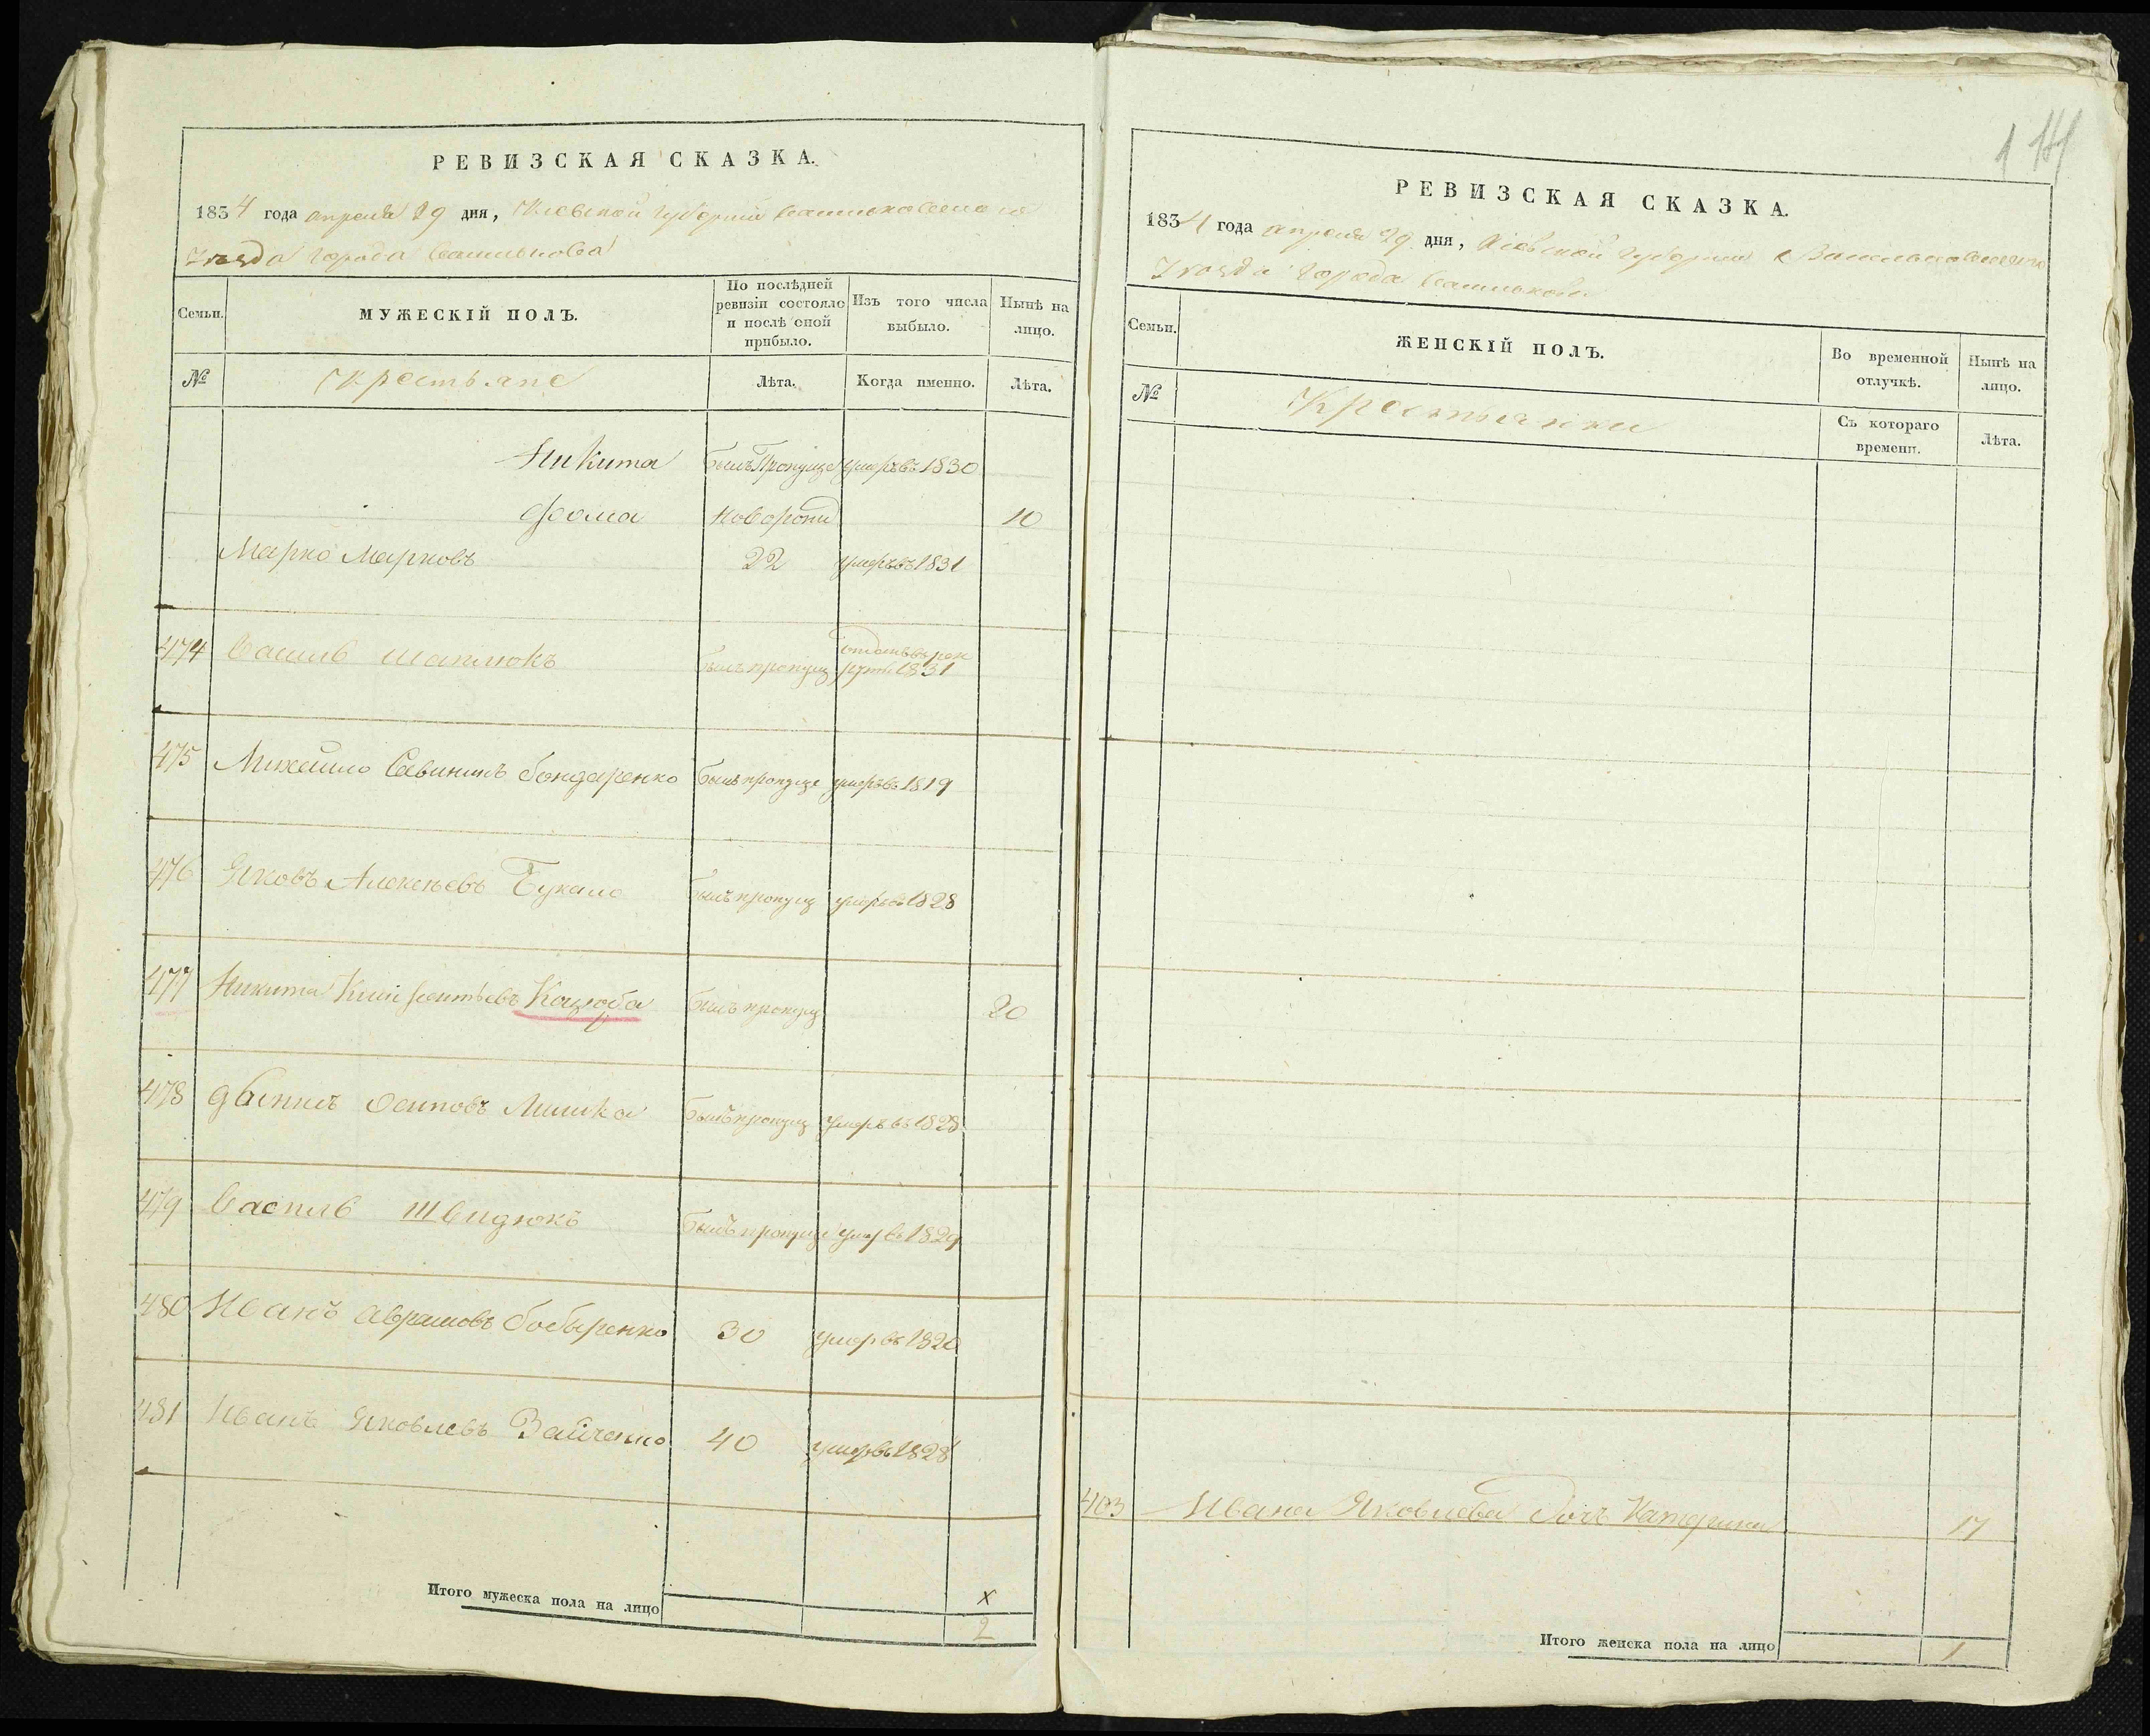 РЕВИЗСКАЯ СКАЗКА.
1834 года апреля 29 дня, Киевской Губернии Васильковского
Уезда Города Василькова
Семьи.
МУЖЕСКІЙ ПОЛЪ.
По послѣдней ревизіи состояло и послѣ оной прибыло.
Изъ того числа выбыло.
Нынѣ на лицо.
№
Крестьяне
Лѣта.
Когда именно.
Лѣта.
Никита былъ Пропуще умеръ въ 1830
Фома новорожд 10
Марко Марковъ 22 умеръ въ 1831
474 Василь былъ пропущ отданъ въ рек
руты 1831
475 Михайло Савинъ бондаренко былъ пропуще умеръ въ 1819
476 Яковъ Алексѣевъ Букало былъ пропущ умеръ въ 1828
477 Никита Коцюба былъ пропущ 20
478 Осиповъ Мишка былъ пропущ умеръ въ 1828
479 Василь Швидюкъ былъ пропуще умер въ 1829
480 Иванъ Аврамовъ бобыренко 30 умер въ 1820
481 Иванъ Яковлевъ Зайченко 40 умер въ 1828
Итого мужеска пола на лицо
x
2
1
РЕВИЗСКАЯ СКАЗКА.
1834 года апреля 29 дня, Кіевской Губернии Васильковского
Уезда Города Василькова
Семьи.
ЖЕНСКІЙ ПОЛЪ.
Во временной отлучкѣ.
Нынѣ на лицо.
№
Крестьянки
Съ котораго времени.
Лѣта.
403 Ивана Яковлева дочь Катерина 17
Итого женска пола на лицо 1